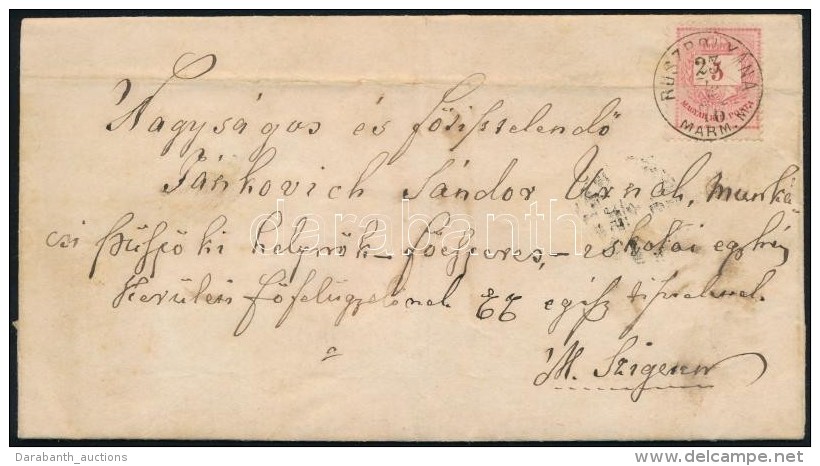 RUSZPOLYÁNA
MARM. M.
5
MAGYAR KIR. POSTA
Nagyságos és főtisztelendő
Jánkovich Sándor Urnak, Munká
csi püspöki helynök – főesperes, – iskolai egyház
Kerületi főfelügyelőnek egész tisztelettel
M. Szigeten
darabanth
Darabanth_auctions
delcampe.net